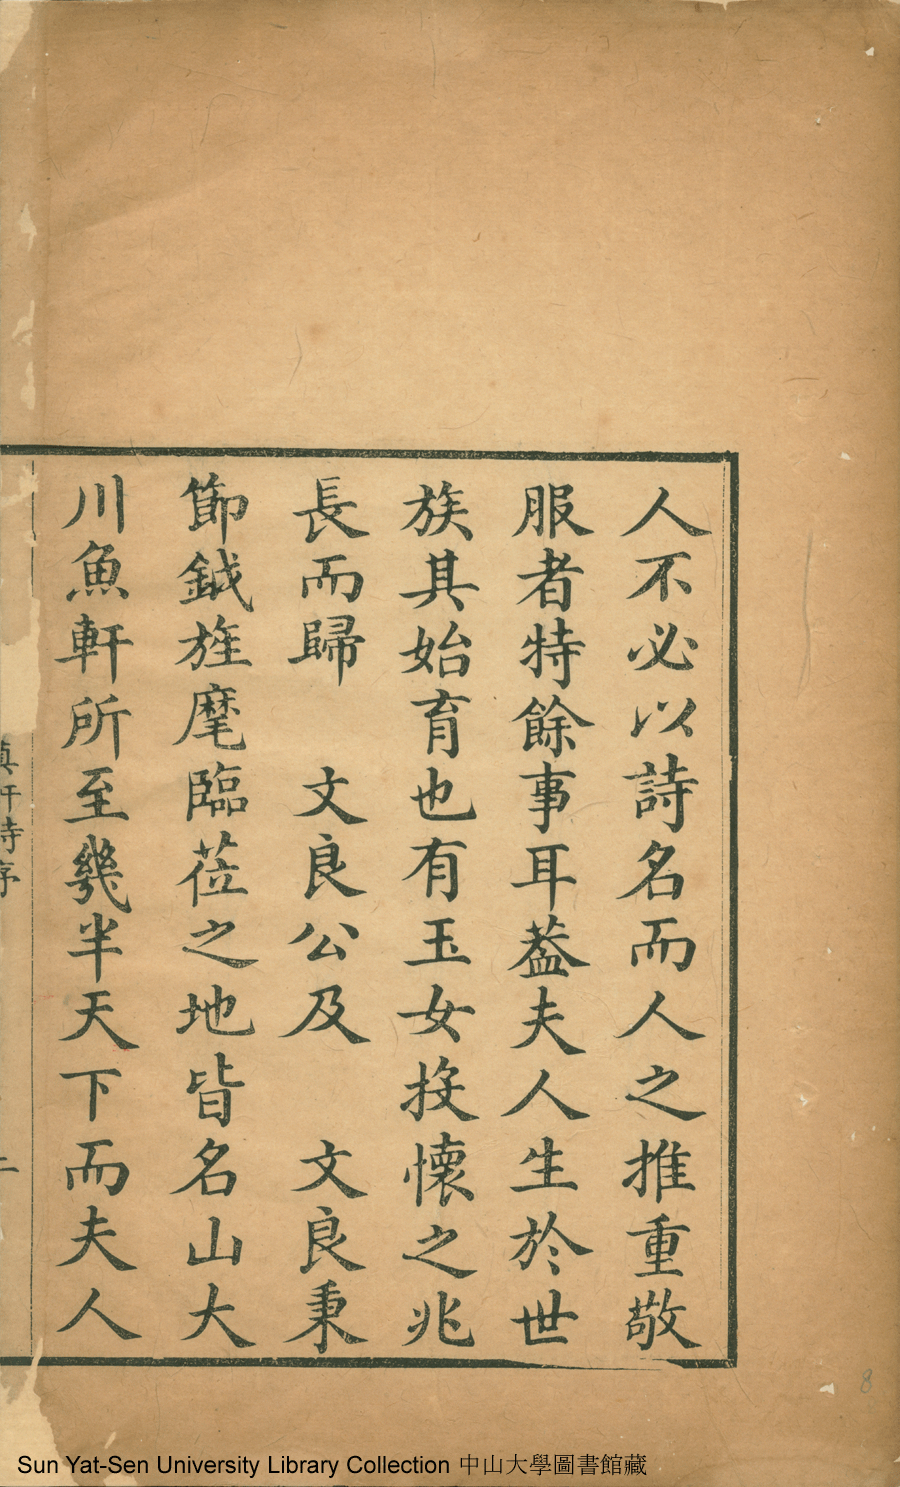 人不必以詩名而人之推重敬
服者特餘事耳葢夫人生於世
族其始育也有玉女投懷之兆
長而歸　文良公及　文良秉
節鉞旌麾臨莅之地皆名山大
川魚軒所至幾半天下而夫人
軒詩序
二
8
Sun Yat-Sen University Library Collection 中山大學圖書館藏